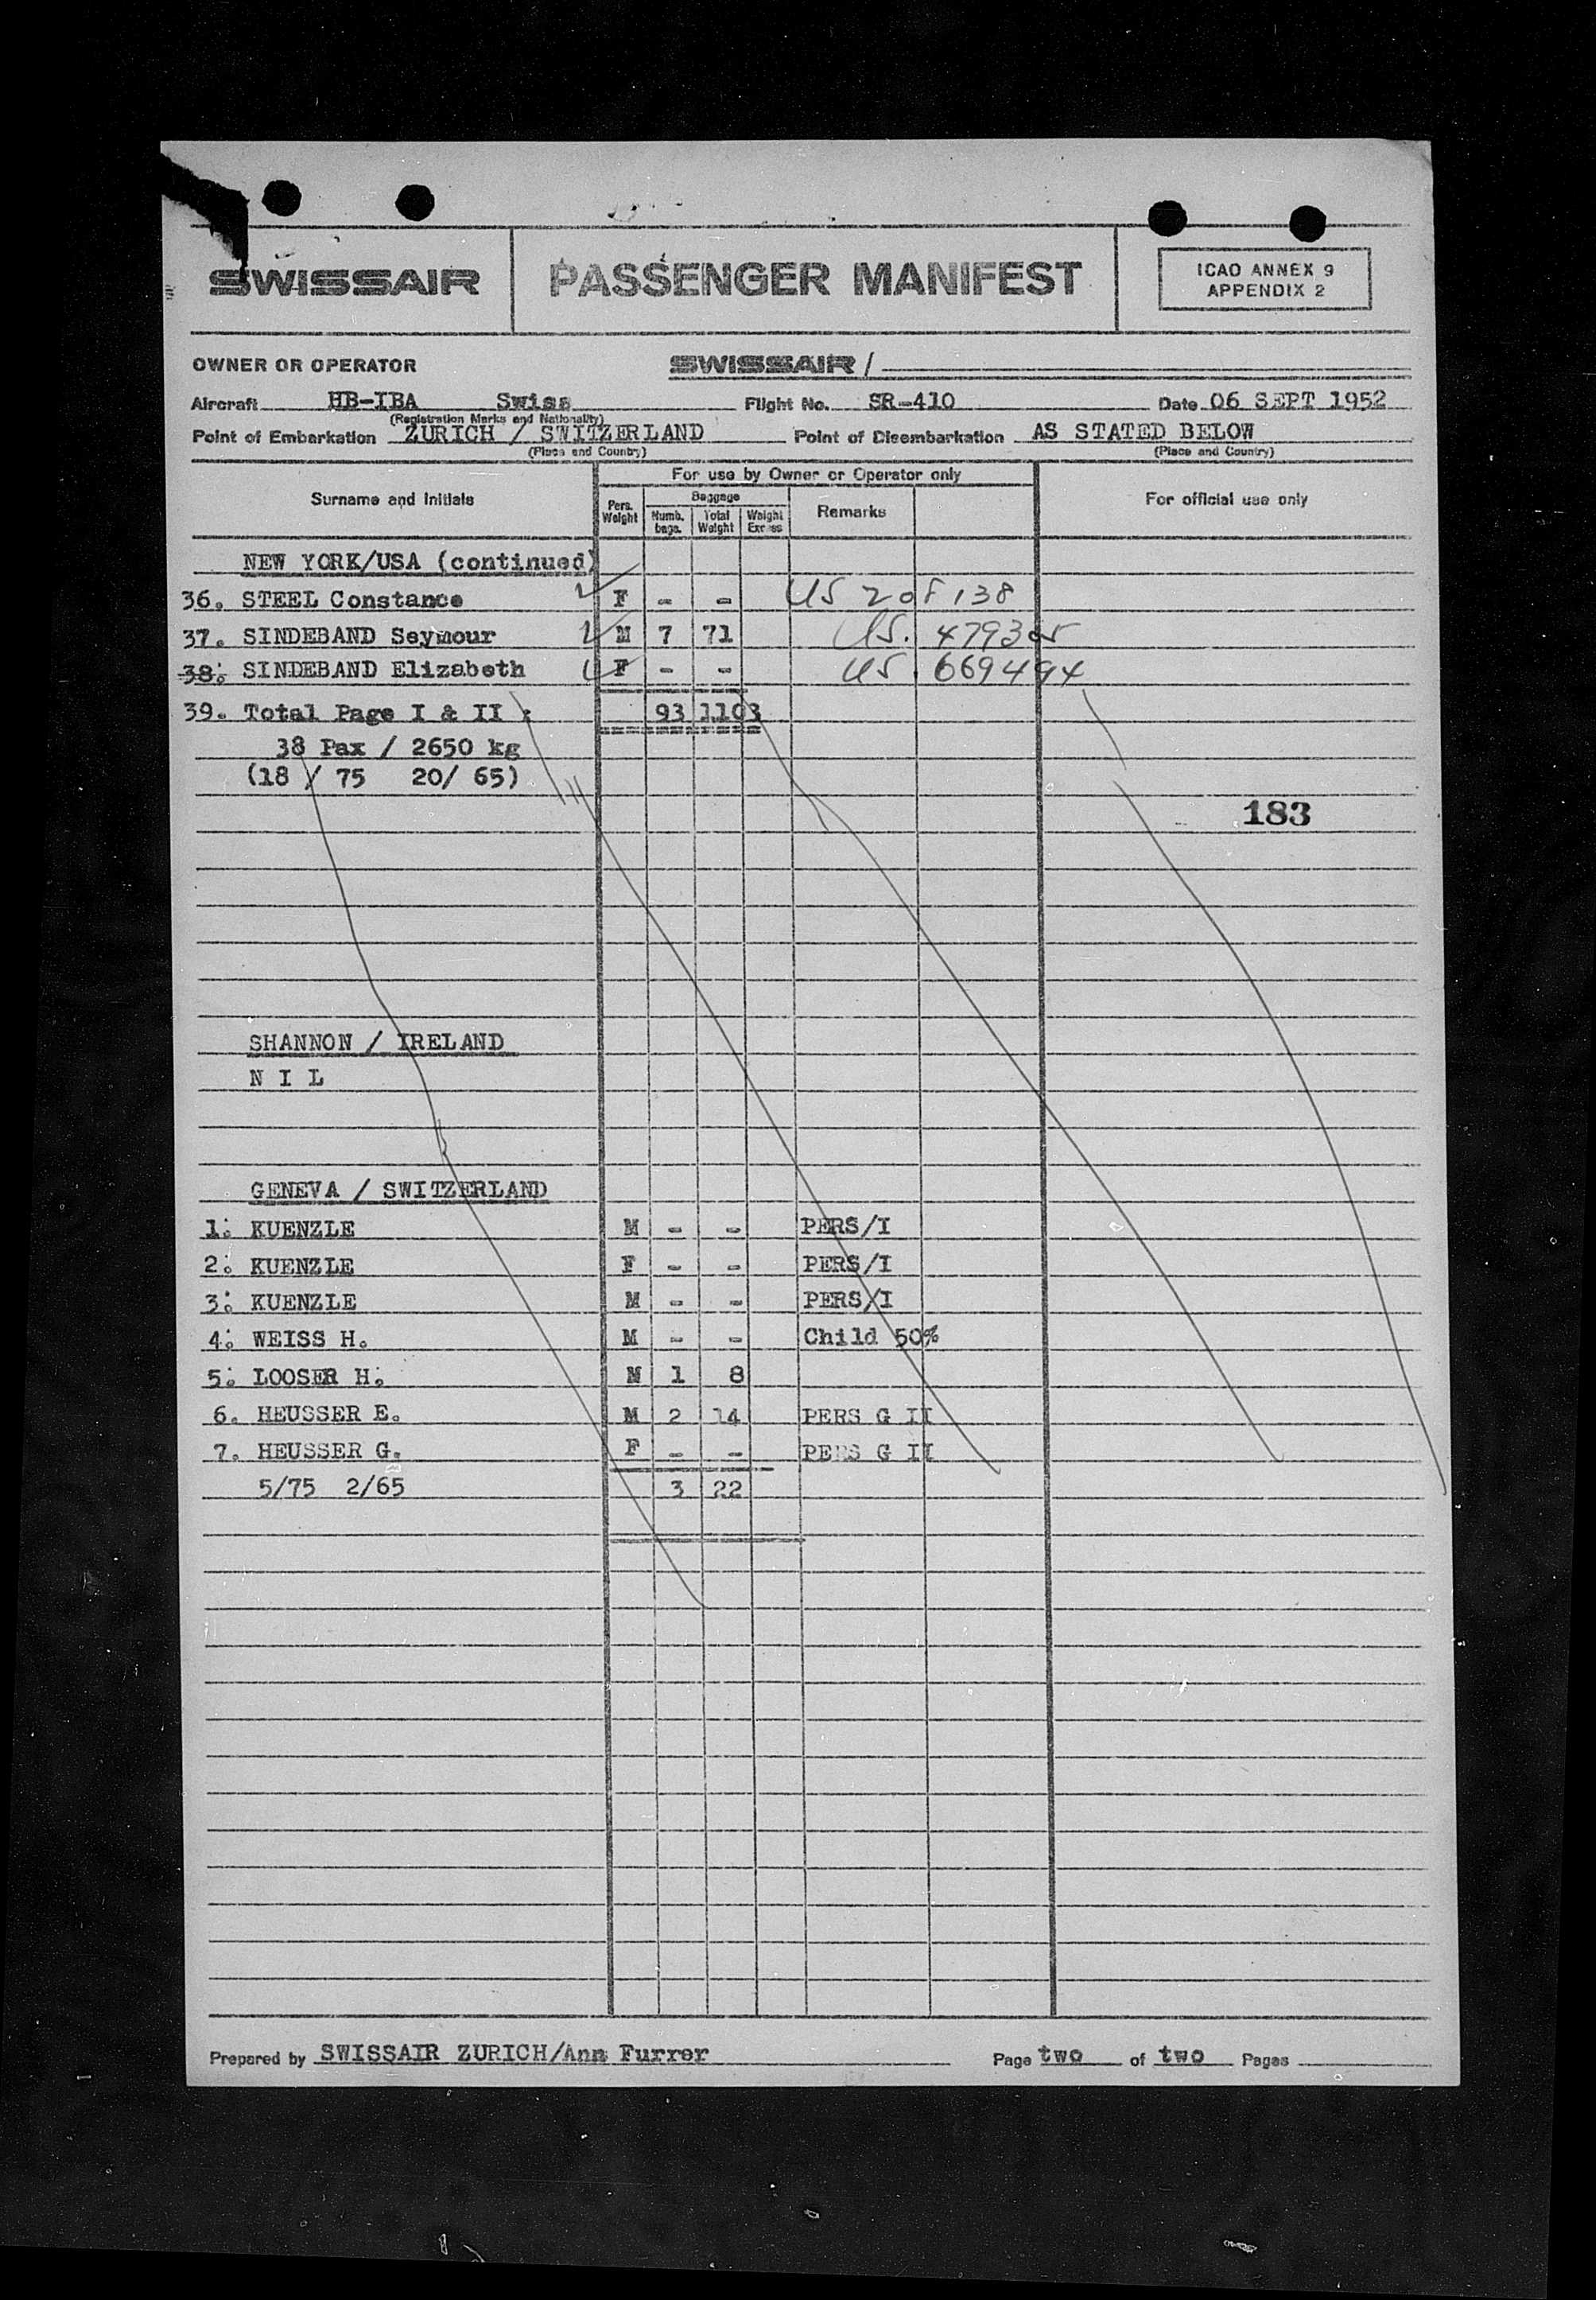 SWISSAIR PASSENGER MANIFEST ICAO ANNEX 9 APPENDIX 2
OWNER OR OPERATOR SWISSAIR /
Aircraft HB-IBA Swiss Flight No. SR-410 Date 06 SEPT 1952
(Registration Marks and Nationality)
Point of Embarkation ZURICH / SWITZERLAND Point of Disembarkation AS STATED BELOW
(Place and Country) (Place and Country)
Surname and Initials For use by Owner or Operator only For official use only
Pers. Weight Baggage Numb. bags. Total Weight Weight Excess Remarks
NEW YORK/USA (continued)
36. STEEL Constance F - - US
37. SINDEBAND Seymour M 7 71 US. 479305
38. SINDEBAND Elizabeth F - - US. 669494
39. Total Page I & II : 93 1103
38 Pax / 2650 kg
(18 / 75 20/ 65)
183
SHANNON / IRELAND
N I L
GENEVA / SWITZERLAND
1. KUENZLE M - - PERS/I
2. KUENZLE F - - PERS/I
3. KUENZLE M - - PERS/I
4. WEISS H. M - - Child 50%
5. LOOSER H. M 1 8
6. HEUSSER E. M 2 14 PERS G II
7. HEUSSER G. F - - PERS G II
5/75 2/65 3 22
Prepared by SWISSAIR ZURICH/Ann Furrer Page two of two Pages